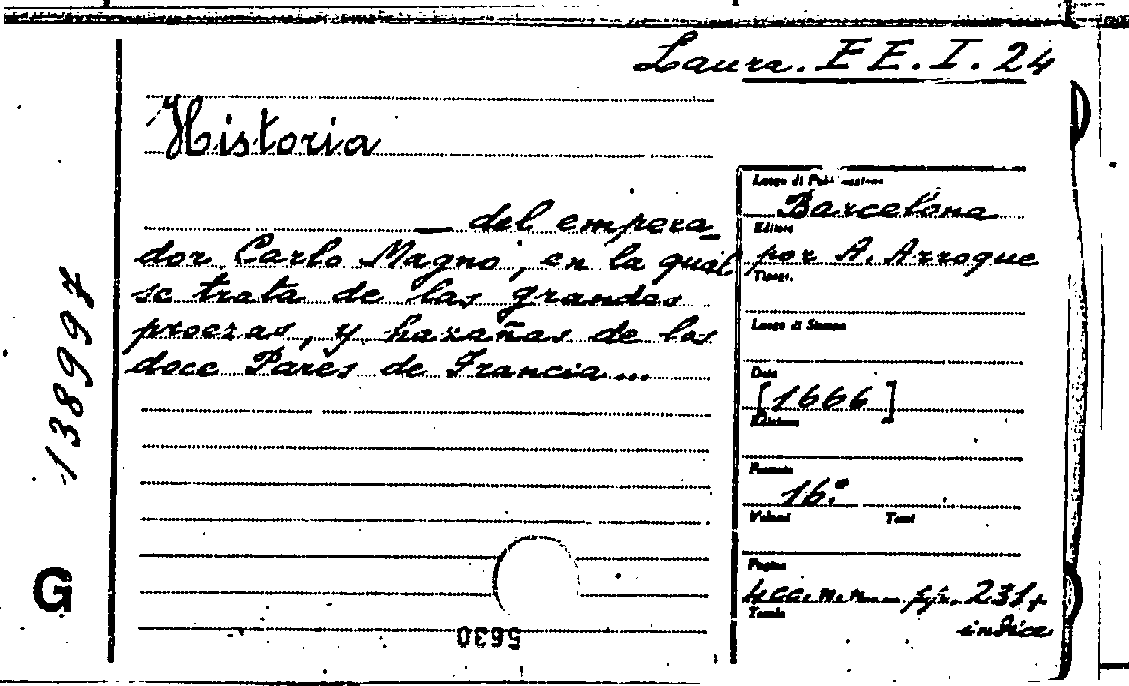 Laura. E E. I. 24
Historia
_ del empera_
dor Carlo Magno, en la qual
se trata de las grandes
proezas, y hazañas de los
doce Pares de Francia...
138997
G
5630
Luogo di Pubblicazione
Barcelona
Editore
por A. Arroque
Tipogr.
Luogo di Stampa
Data
[1666]
Edizione
Formato
16.º
Volumi Tomi
Pagine
4 cc. págs. 231 +
Tavole
indice